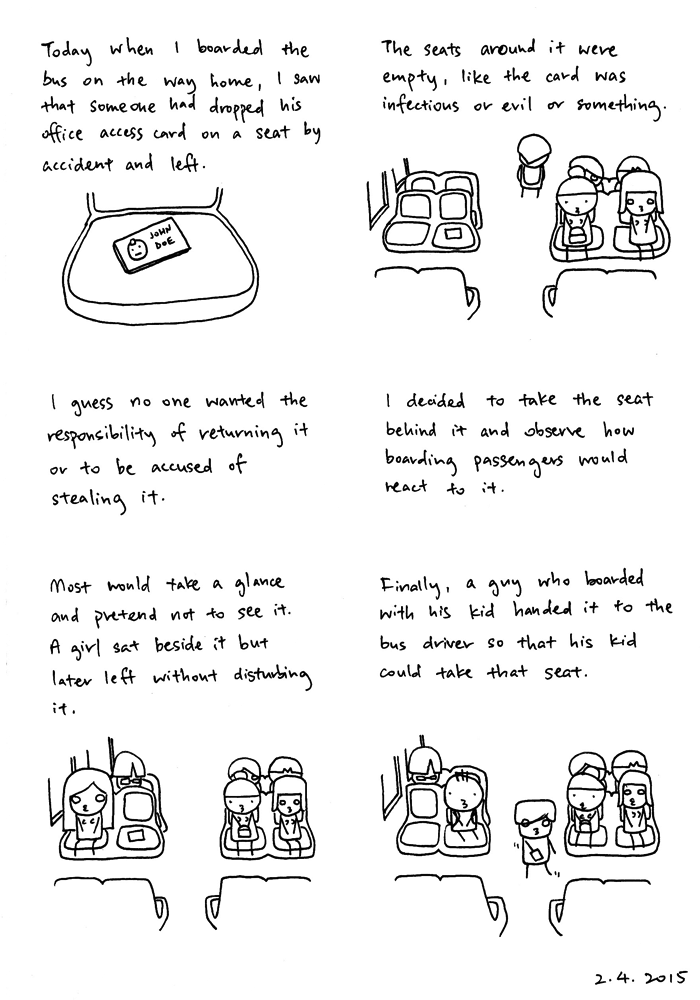 Today when I boarded the
bus on the way home, I saw
that someone had dropped his
office access card on a seat by
accident and left.
JOHN
DOE
The seats around it were
empty, like the card was
infectious or evil or something.
I guess no one wanted the
responsibility of returning it
or to be accused of
stealing it.
I decided to take the seat
behind it and observe how
boarding passengers would
react to it.
Most would take a glance
and pretend not to see it.
A girl sat beside it but
later left without disturbing
it.
Finally, a guy who boarded
with his kid handed it to the
bus driver so that his kid
could take that seat.
2.4.2015